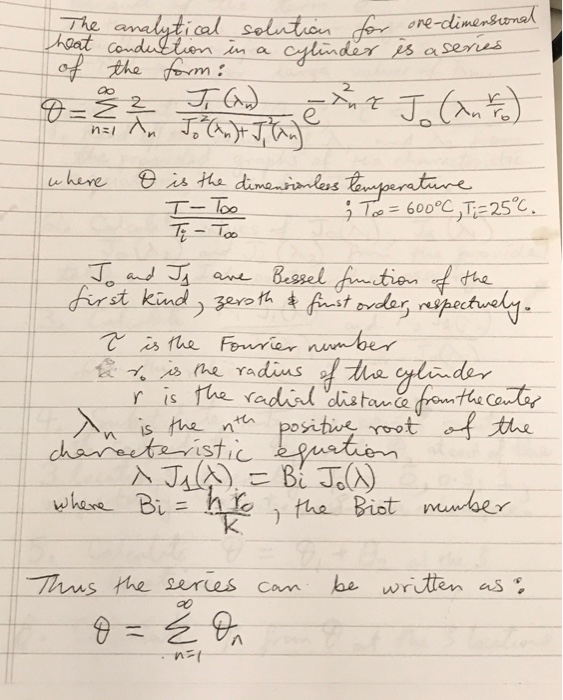 The analytical solution for one-dimensional
heat conduction in a cylinder is a series
of the form:
θ = ∑_{n=1}^{∞} 2/λn J₁(λn)/(J₀²(λn) + J₁²(λn)) e^{-λn² τ} J₀(λn r/r₀)
where θ is the dimensionless temperature
(T - T∞)/(Ti - T∞) ; T∞ = 600°C, Ti = 25°C.
J₀ and J₁ are Bessel function of the
first kind, zeroth & first order, respectively.
τ is the Fourier number
r₀ is the radius of the cylinder
r is the radial distance from the center
λn is the nth positive root of the
characteristic equation
λ J₁(λ) = Bi J₀(λ)
where Bi = h r₀/k, the Biot number
Thus the series can be written as:
θ = ∑_{n=1}^{∞} θn